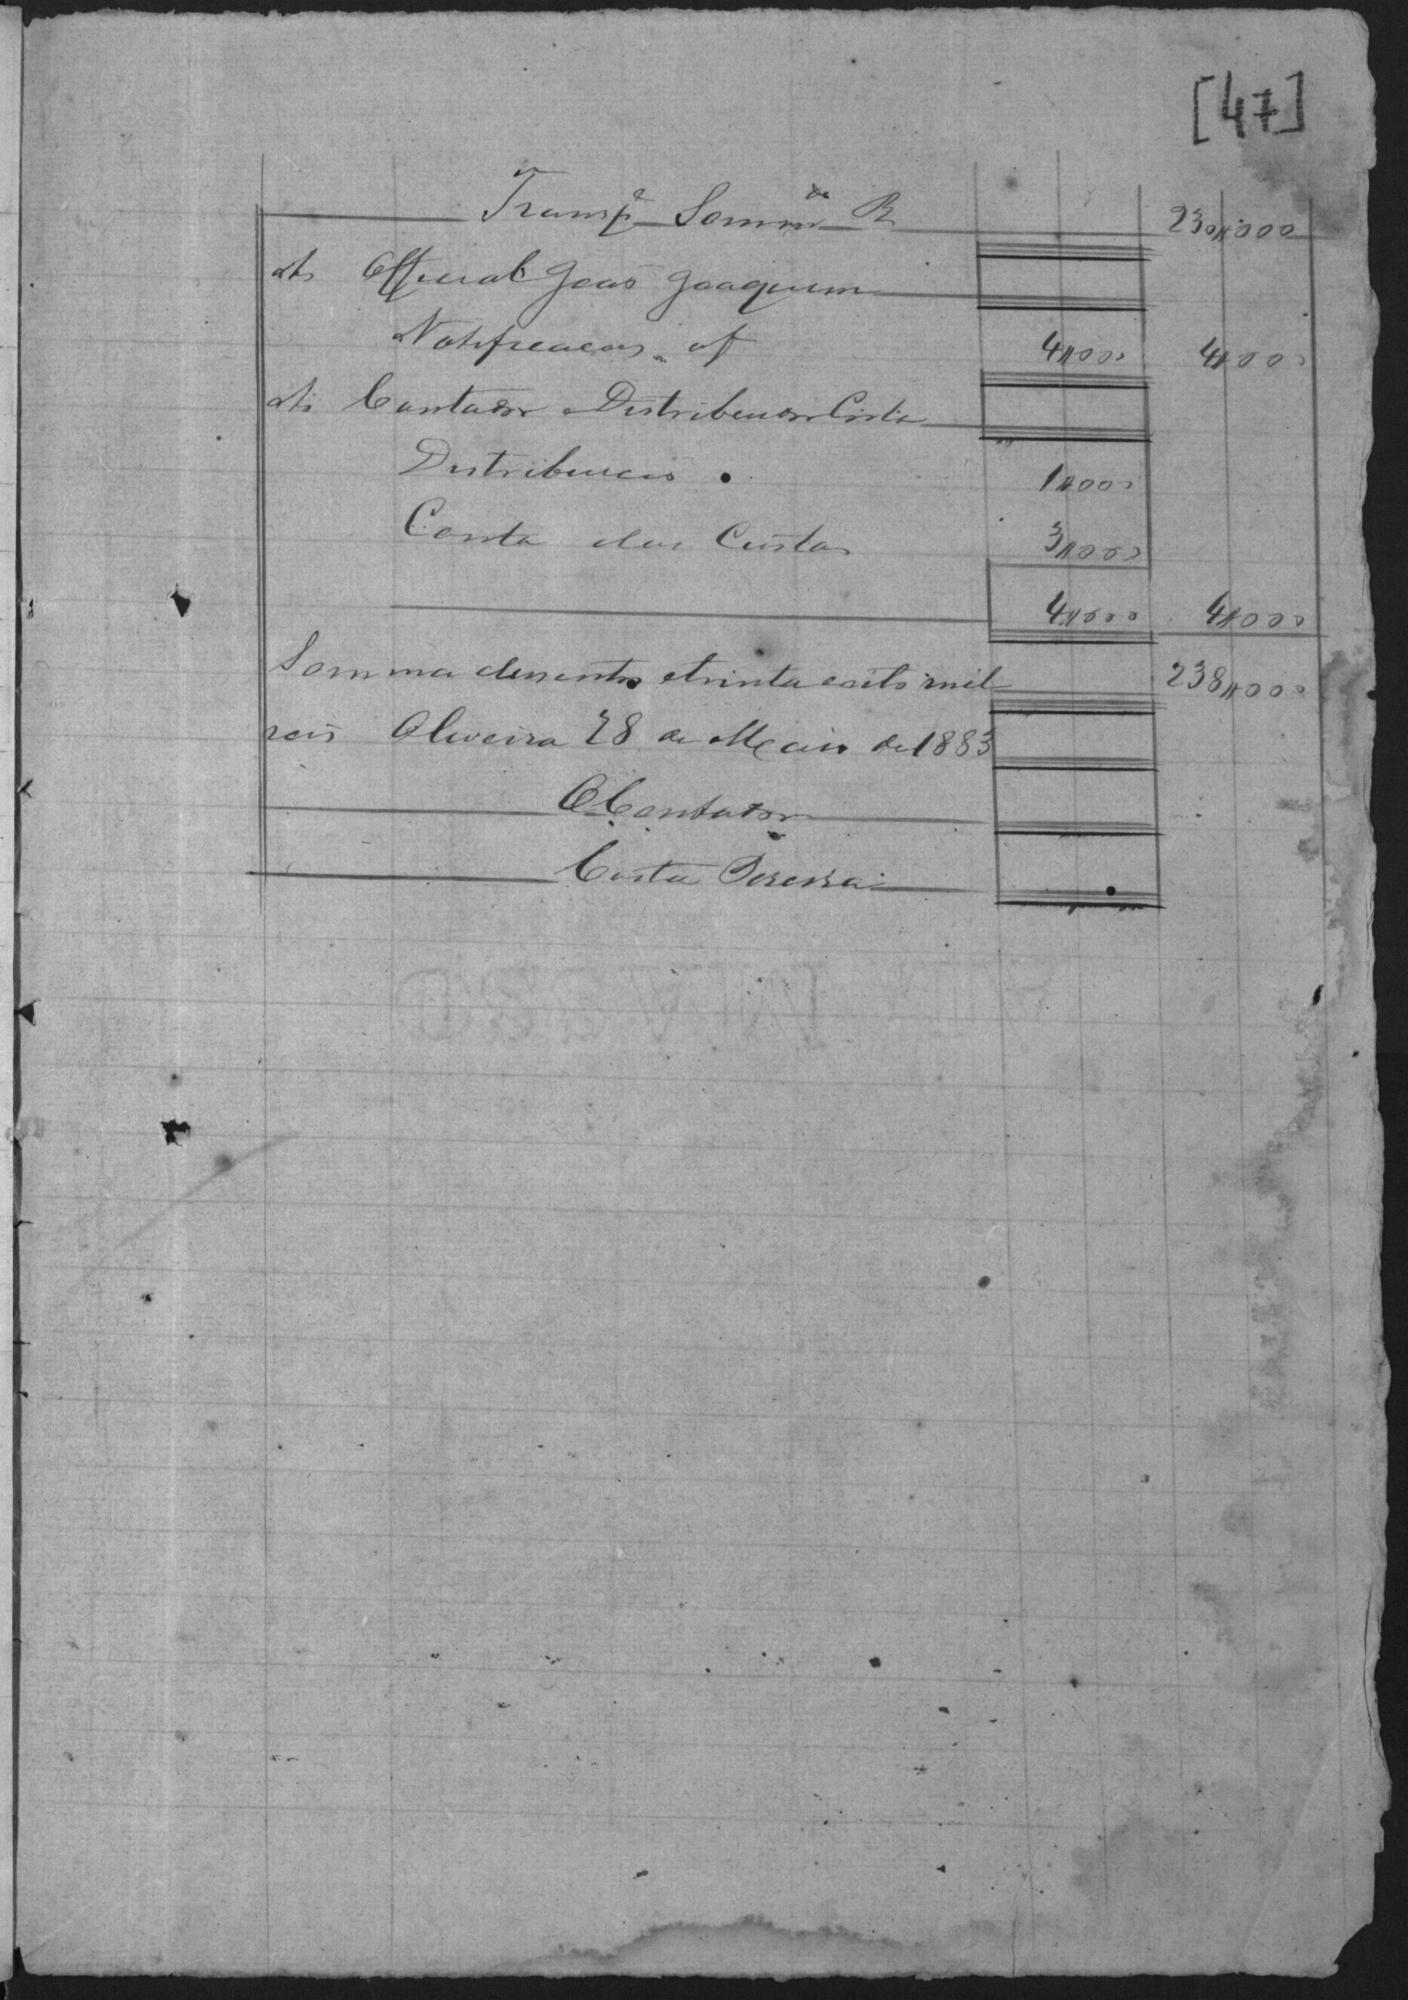 [47]
Transpe Somma R 230$000
Ao Official Joao Joaquim
Notificacao af 4$000 4$000
Ao Contador e Distribuidor Costa
Distribuicao 1$000
Conta das Custas 3$000
4$000 4$000
Somma dusentos e trinta e oito mil 238$000
reis Oliveira 28 de Maio de 1883
O Contador
Costa Pereira